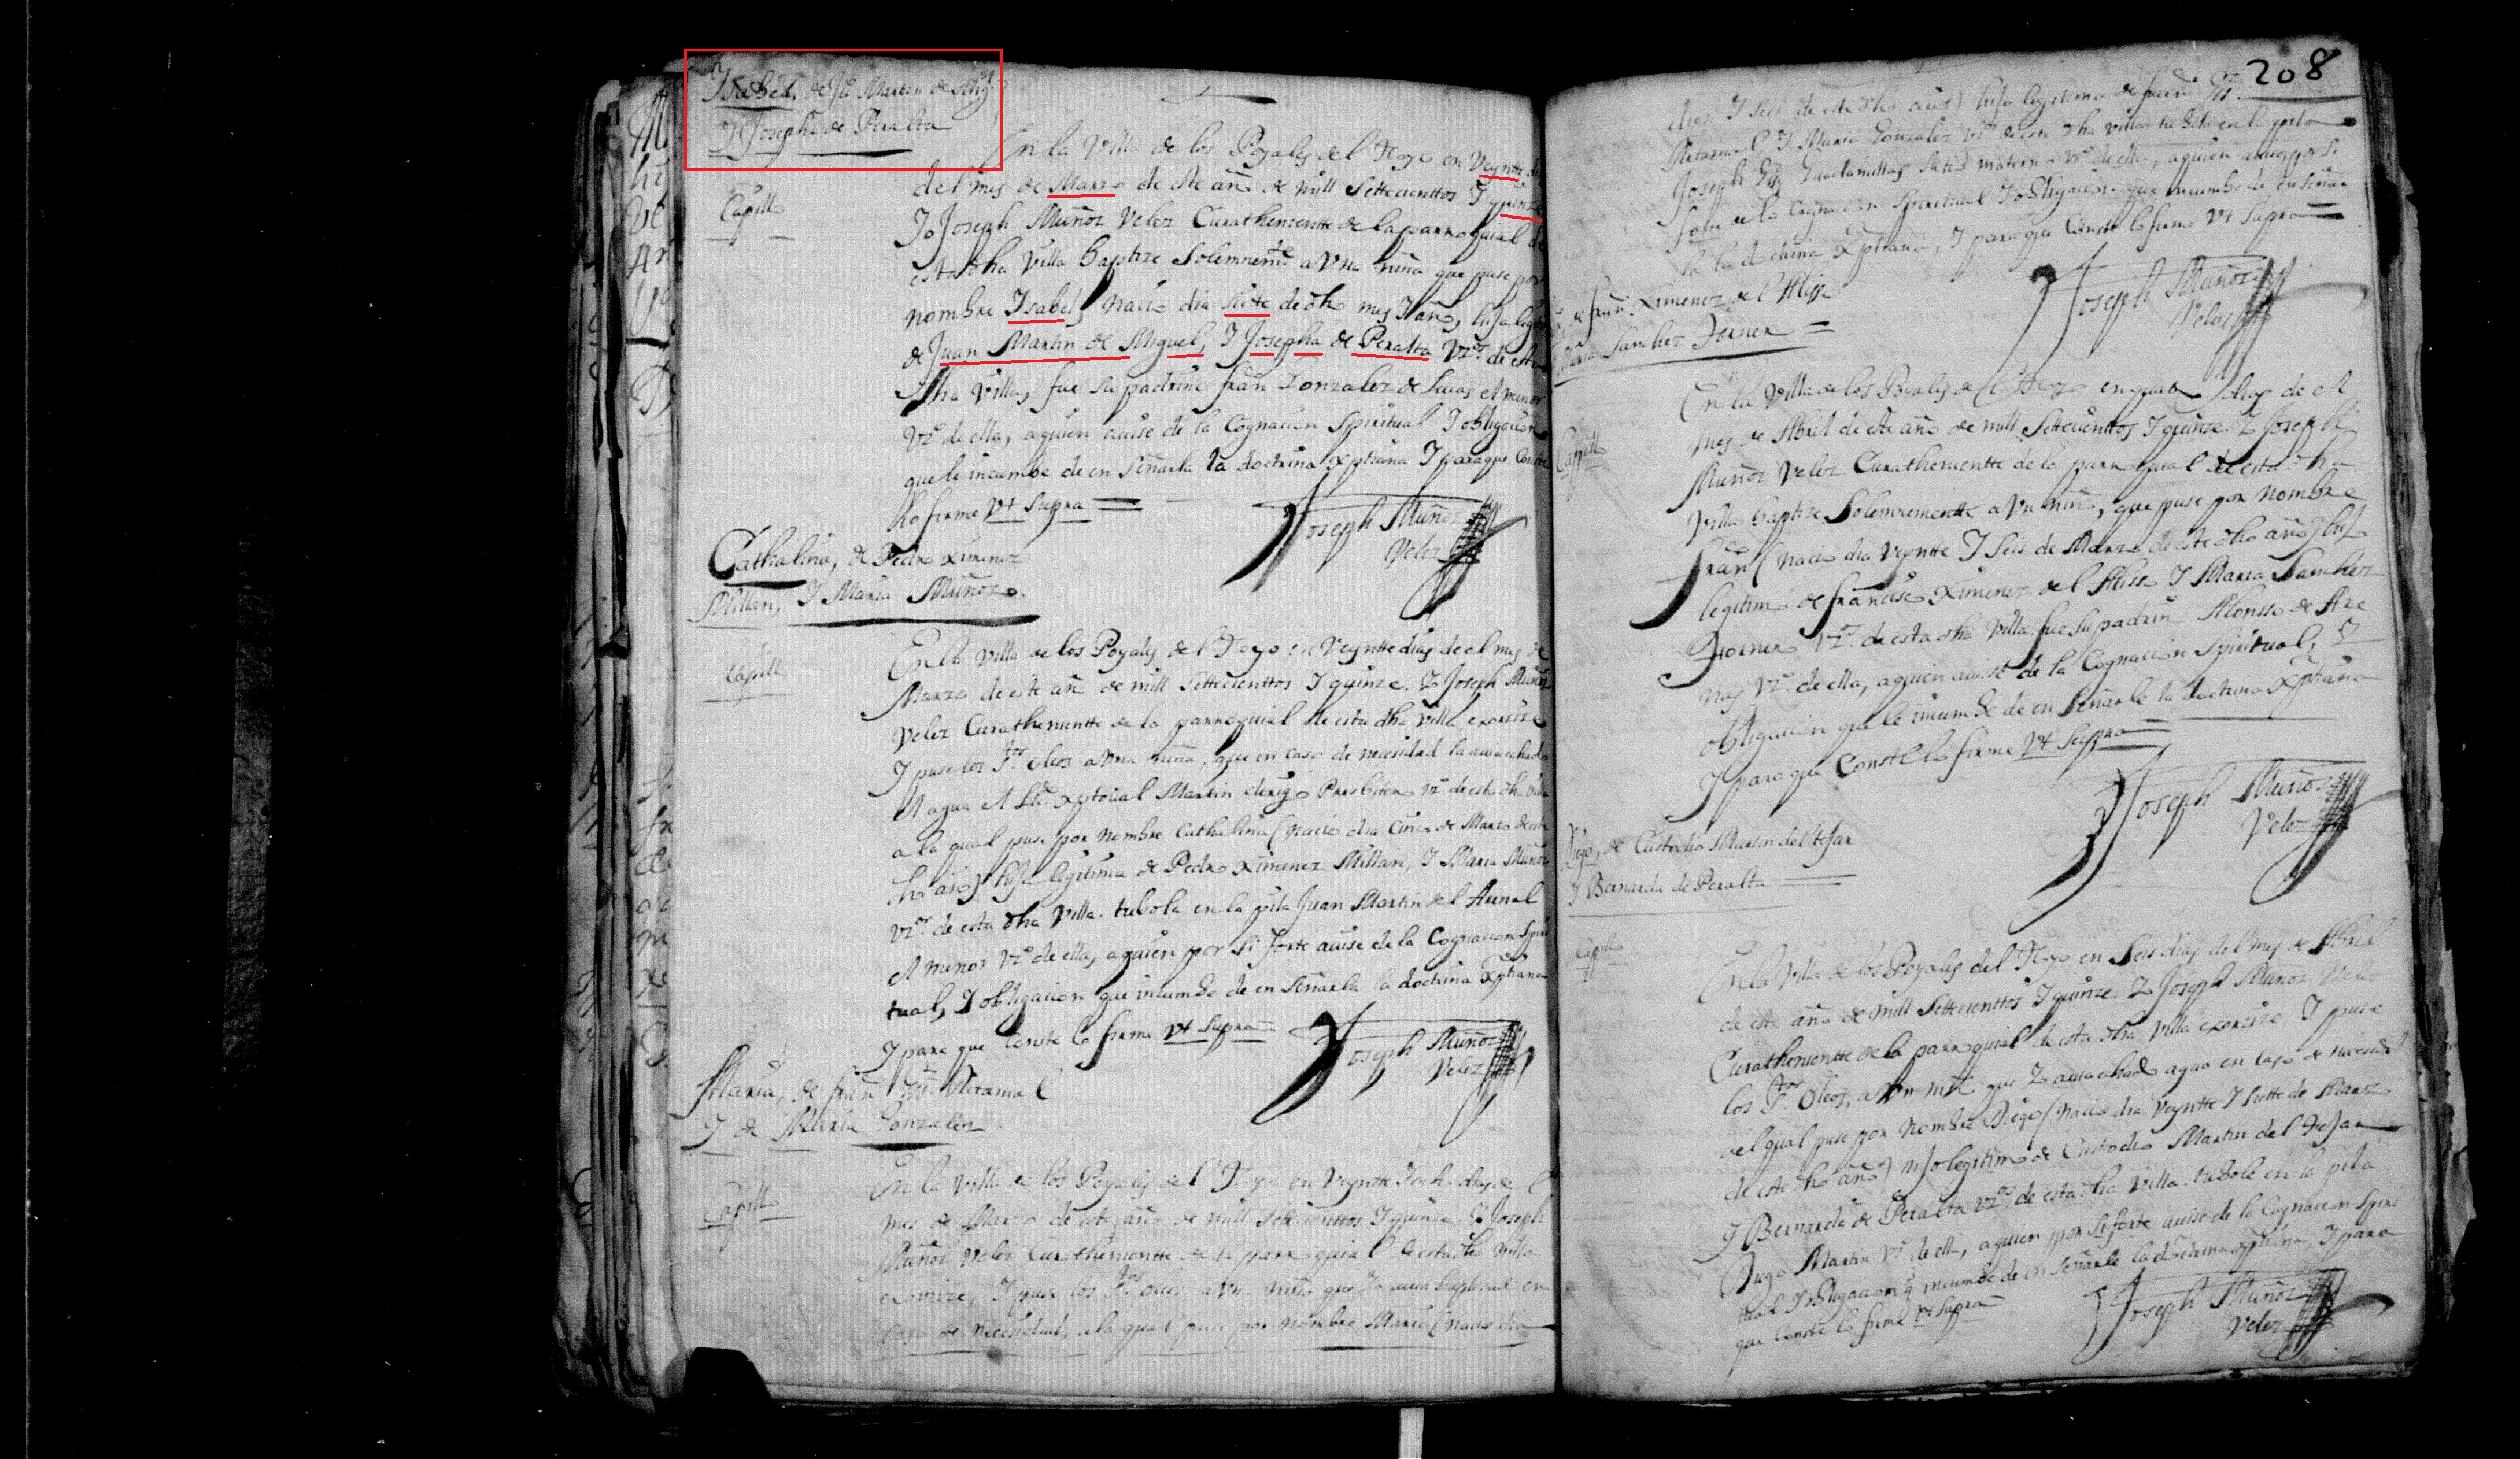 Isabel, de Ju Martin de Migl
Y Josepha de Peralta
Capillo
En la Villa de los Poyales del Hoyo en Veyntte
del mes de Marzo de este año de mill Settecienttos Y quinze
Yo Joseph Muñoz Velez Curathenientte de la parroquial de
esta dha Villa baptize Solemnemte a Vna niña que puse por
nombre Isabel, nacio dia Siete de dho mes Y año, hija legit
de Juan Martin de Miguel, Y Josepha de Peralta Vzos de esta
dha Villa, fue Su padrino fran Gonzalez de Lucas el menor
Vzo de ella, aquien auise de la Cognacion Spiritual Y obligacion
que le incumbe de en Señarla la doctrina Xptiana Y para que Conste
lo firme Vt Supra
Joseph Muñoz
Velez
Cathalina, de Pedro Ximenez
Millan, Y Maria Muñoz.
Capillo
En la Villa de los Poyales del Hoyo en Veynttedias de el mes de
Marzo de este año de mill Settecienttos Y quinze. Yo Joseph Muñoz
Velez Curathenientte de la parroquial de esta dha Villa exorzize
Y puse los Stos Oleos a Vna niña, que en caso de necesidad la auia echado
el agua el Lizdo Xptoual Martin clerigo Presbitero Vzo de esta dha Villa
a la qual puse por nombre Cathalina (nacio dia Cinco de Marzo de este
dho año) hija legitima de Pedro Ximenez Millan, Y Maria Muñoz
Vzos de esta dha Villa. tubola en la pila Juan Martin del Arenal
el menor Vzo de ella, aquien por Si forte auise de la Cognacion Spiri
tual, Y obligacion que incumbe de en Señarla la doctrina Xptiana
Y para que Conste lo firme Vt Supra
Joseph Muñoz
Velez
Maria, de fran Retamal
Y de Maria Gonzalez
Capillo
En la Villa de los Poyales del Hoyo en Veyntte Y ocho dias de el
mes de Marzo de este año de mill Settecienttos Y quinze. Yo Joseph
Muñoz Velez Curathenientte de la parroquial de esta dha Villa
exorzize, Y puse los Stos Oleos a Vna niña que Yo auia baptizado en
Caso de necesidad, a la qual puse por nombre Maria (nacio dia
208
diez Y Seis de este dho año) hija legitima de fran
Retamal, Y Maria Gonzalez Vzos de esta dha Villa tubola en la pila
Joseph Guadamillas Su tio materno Vzo de ella, aquien auise por Si
forte de la Cognacion Spiritual Y obligacion que incumbe de en Señar
la la doctrina Xptiana, Y para que Conste lo firme Vt Supra
Joseph Muñoz
Velez
de fran Ximenez del Alisso
Maria Sanchez Forner
Capillo
En la Villa de los Poyales del Hoyo en quatro dias de el
mes de Abril de este año de mill Settecienttos Y quinze. Yo Joseph
Muñoz Velez Curathenientte de la parroquial de esta dha
Villa baptize Solemnementte a Vn niño, que puse por nombre
franco (nacio dia Veyntte Y Seis de Marzo de este dho año) hijo
legitimo de francisco Ximenez del Alisso Y Maria Sanchez
Forner Vzos de esta dha Villa fue Su padrino Alonsso de Are
nas Vzo de ella, aquien auise de la Cognacion Spiritual, Y
obligacion que le incumbe de en Señarle la doctrina Xptiana
Y para que Conste lo firme Vt Supra
Joseph Muñoz
Velez
Diego, de Custodio Martin del tejar
Y Bernarda de Peralta
Capillo
En la Villa de los Poyales del Hoyo en Seis dias del mes de Abril
de este año de mill Settecienttos Y quinze. Yo Joseph Muñoz Velez
Curathenientte de la parroquial de esta dha Villa exorzize, Y puse
los Stos Oleos, a Vn niño que Yo auia echado agua en caso de necesidad
a el qual puse por nombre Diego (nacio dia Veyntte Y Siette de Marzo
de este dho año) hijo legitimo de Custodio Martin del tejar
Y Bernarda de Peralta Vzos de esta dha Villa. tubole en la pila
Diego Martin Vzo de ella, aquien por Si forte auise de la Cognacion Spiri
tual Y obligacion q incumbe de en Señarle la doctrina Xptiana, Y para
que Conste lo firme Vt Supra
Joseph Muñoz
Velez